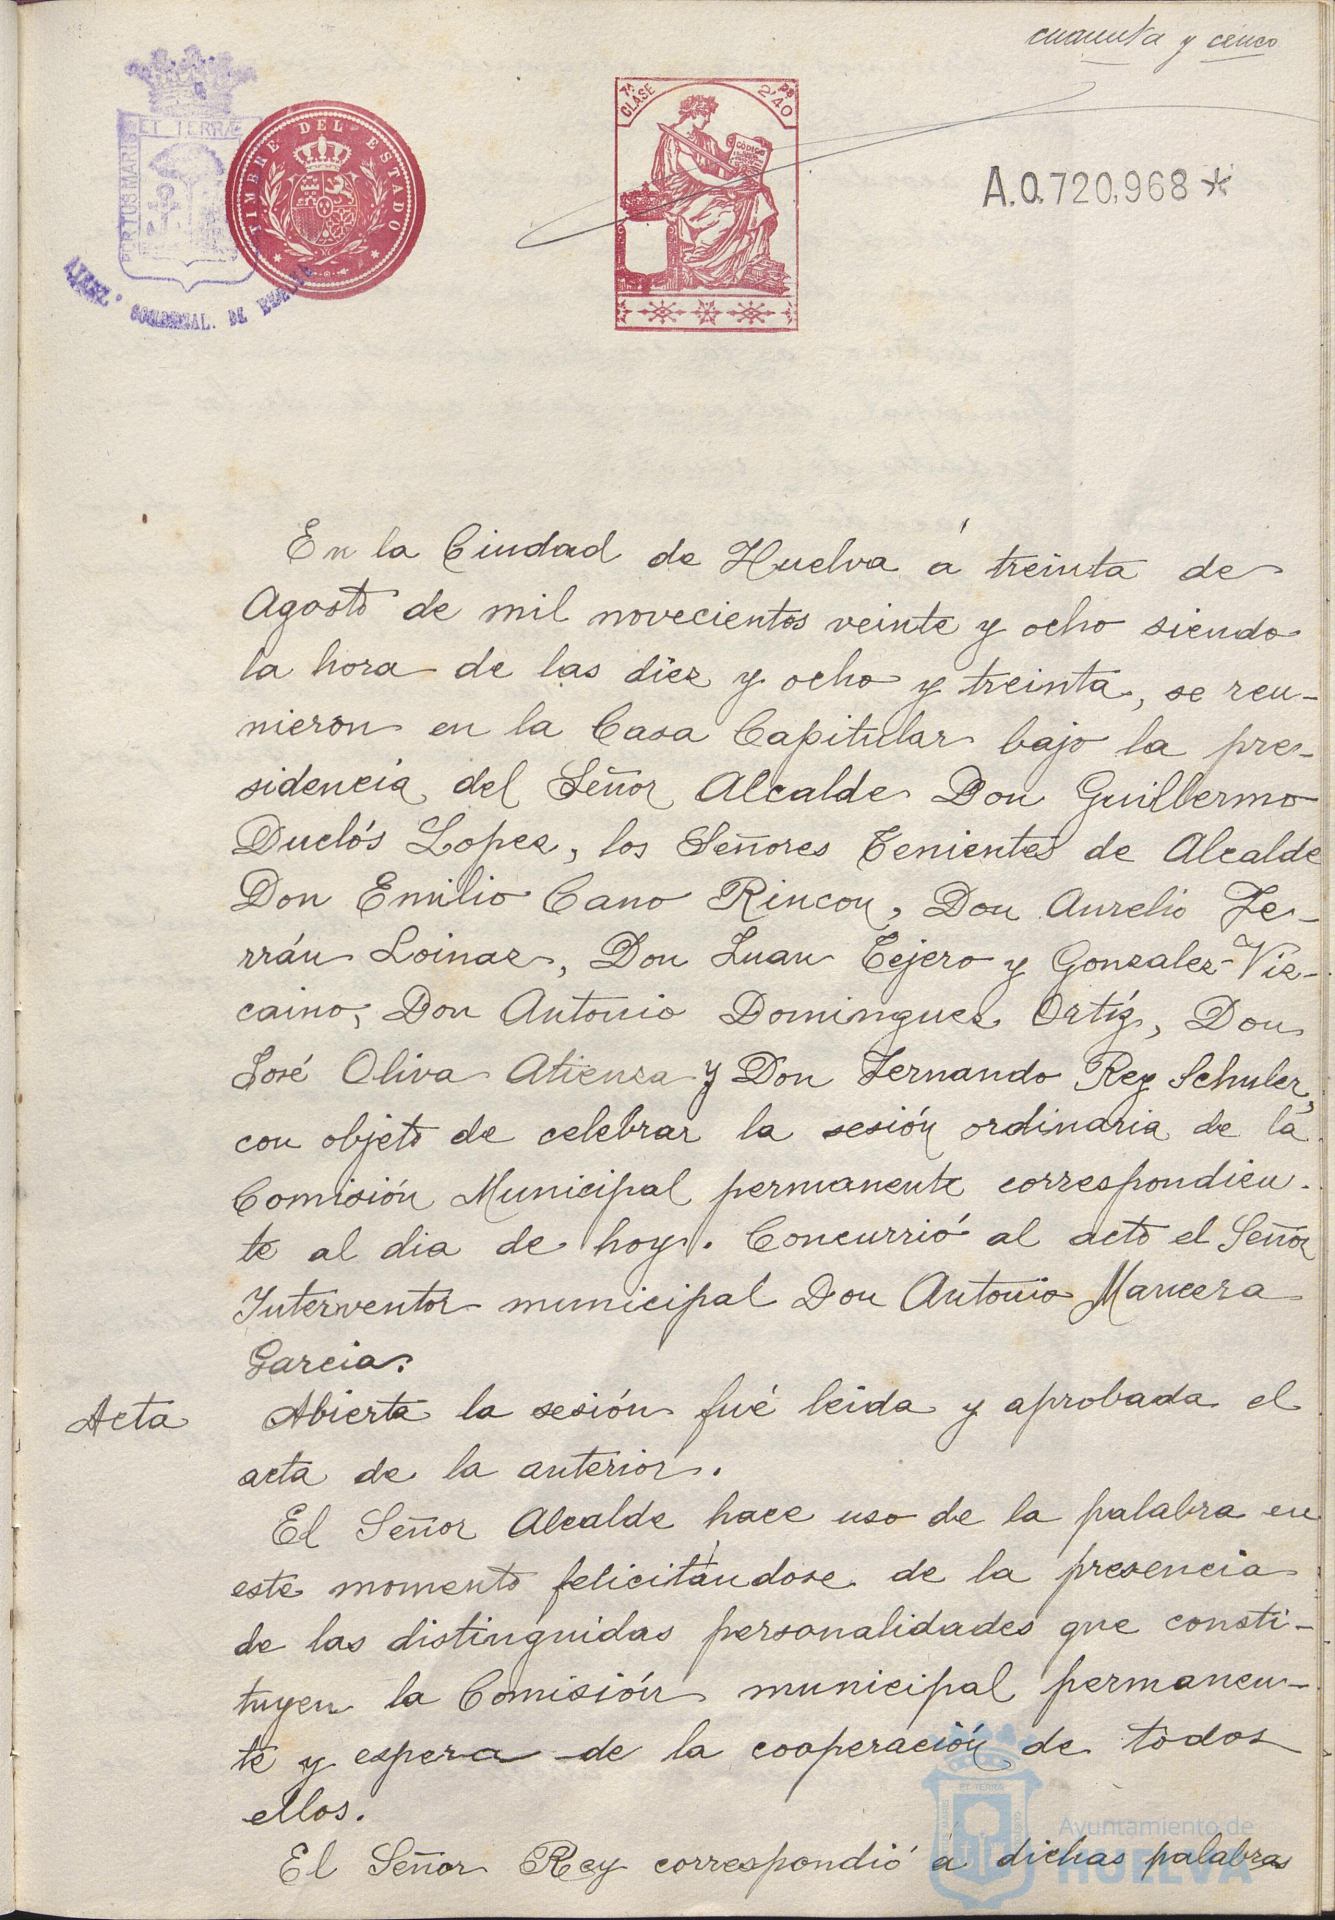 cuarenta y cinco
ET TERRA
PORTUS MARIS
TIMBRE DEL ESTADO
7ª CLASE
2'40
CODIGO
A.0,720,968*
DE HUELVA
En la Ciudad de Huelva á treinta de
Agosto de mil novecientos veinte y ocho siendo
la hora de las diez y ocho y treinta, se reu-
nieron en la Casa Capitular bajo la pre-
sidencia del Señor Alcalde Don Guillermo
Duclós Lopez, los Señores Tenientes de Alcalde
Don Emilio Cano Rincon, Don Aurelio Fe-
rrán Loinaz, Don Juan Tejero y Gonzalez-Viz-
caino, Don Antonio Dominguez Ortíz, Don
José Oliva Atienza y Don Fernando Rey Schuler,
con objeto de celebrar la sesión ordinaria de la
Comisión Municipal permanente correspondien-
te al dia de hoy. Concurrió al acto el Señor
Interventor municipal Don Antonio Mancera
Garcia.
Acta Abierta la sesión fué leida y aprobada el
acta de la anterior.
El Señor Alcalde hace uso de la palabra en
este momento felicitándose de la presencia
de las distinguidas personalidades que consti-
tuyen la Comisión municipal permanen-
te y espera de la cooperación de todos
ellos.
El Señor Rey correspondió á dichas palabras
ET TERRA
Ayuntamiento de
HUELVA